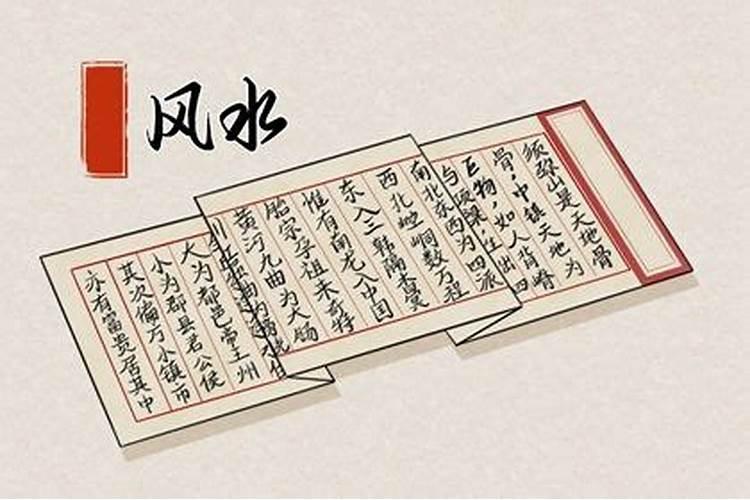 风水
须弥山是天地骨
骨，中镇天地为
巨物，如人背脊
与项梁，生出四
南北东西为四派
西北崆峒数万程
东入三韩隔杳冥
惟有南龙入中国
胎宗孕祖来奇特
黄河九曲为大肠
大为都邑帝王州
小为郡县君公侯
其次偏方小镇市
亦有富贵居其中